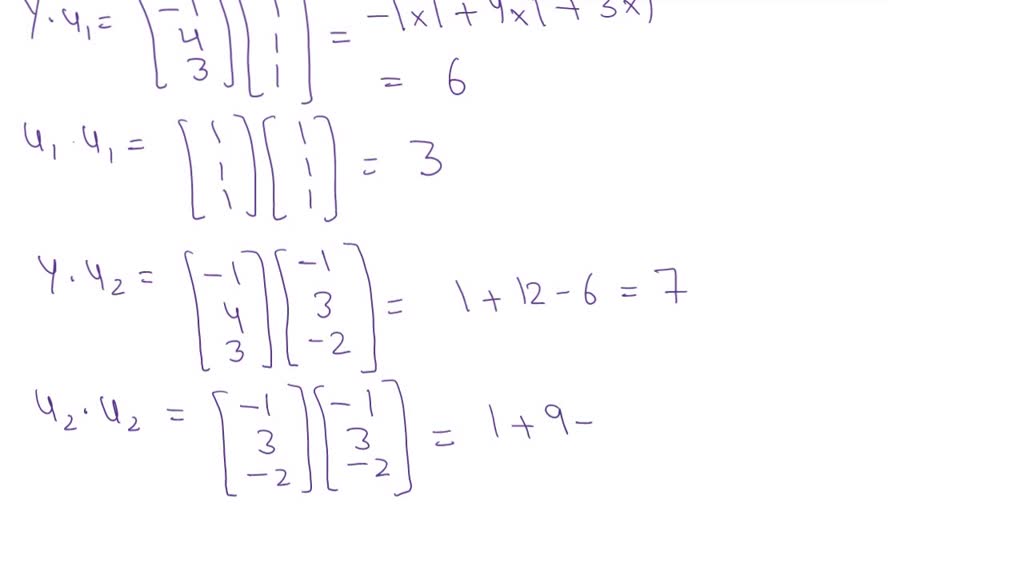 y · u₁ = [-1 4 3] [1 1 1] = -1x1 + 4x1 + 3x1
= 6
u₁ · u₁ = [1 1 1] [1 1 1] = 3
y · u₂ = [-1 4 3] [-1 3 -2] = 1 + 12 - 6 = 7
u₂ · u₂ = [-1 3 -2] [-1 3 -2] = 1 + 9 -